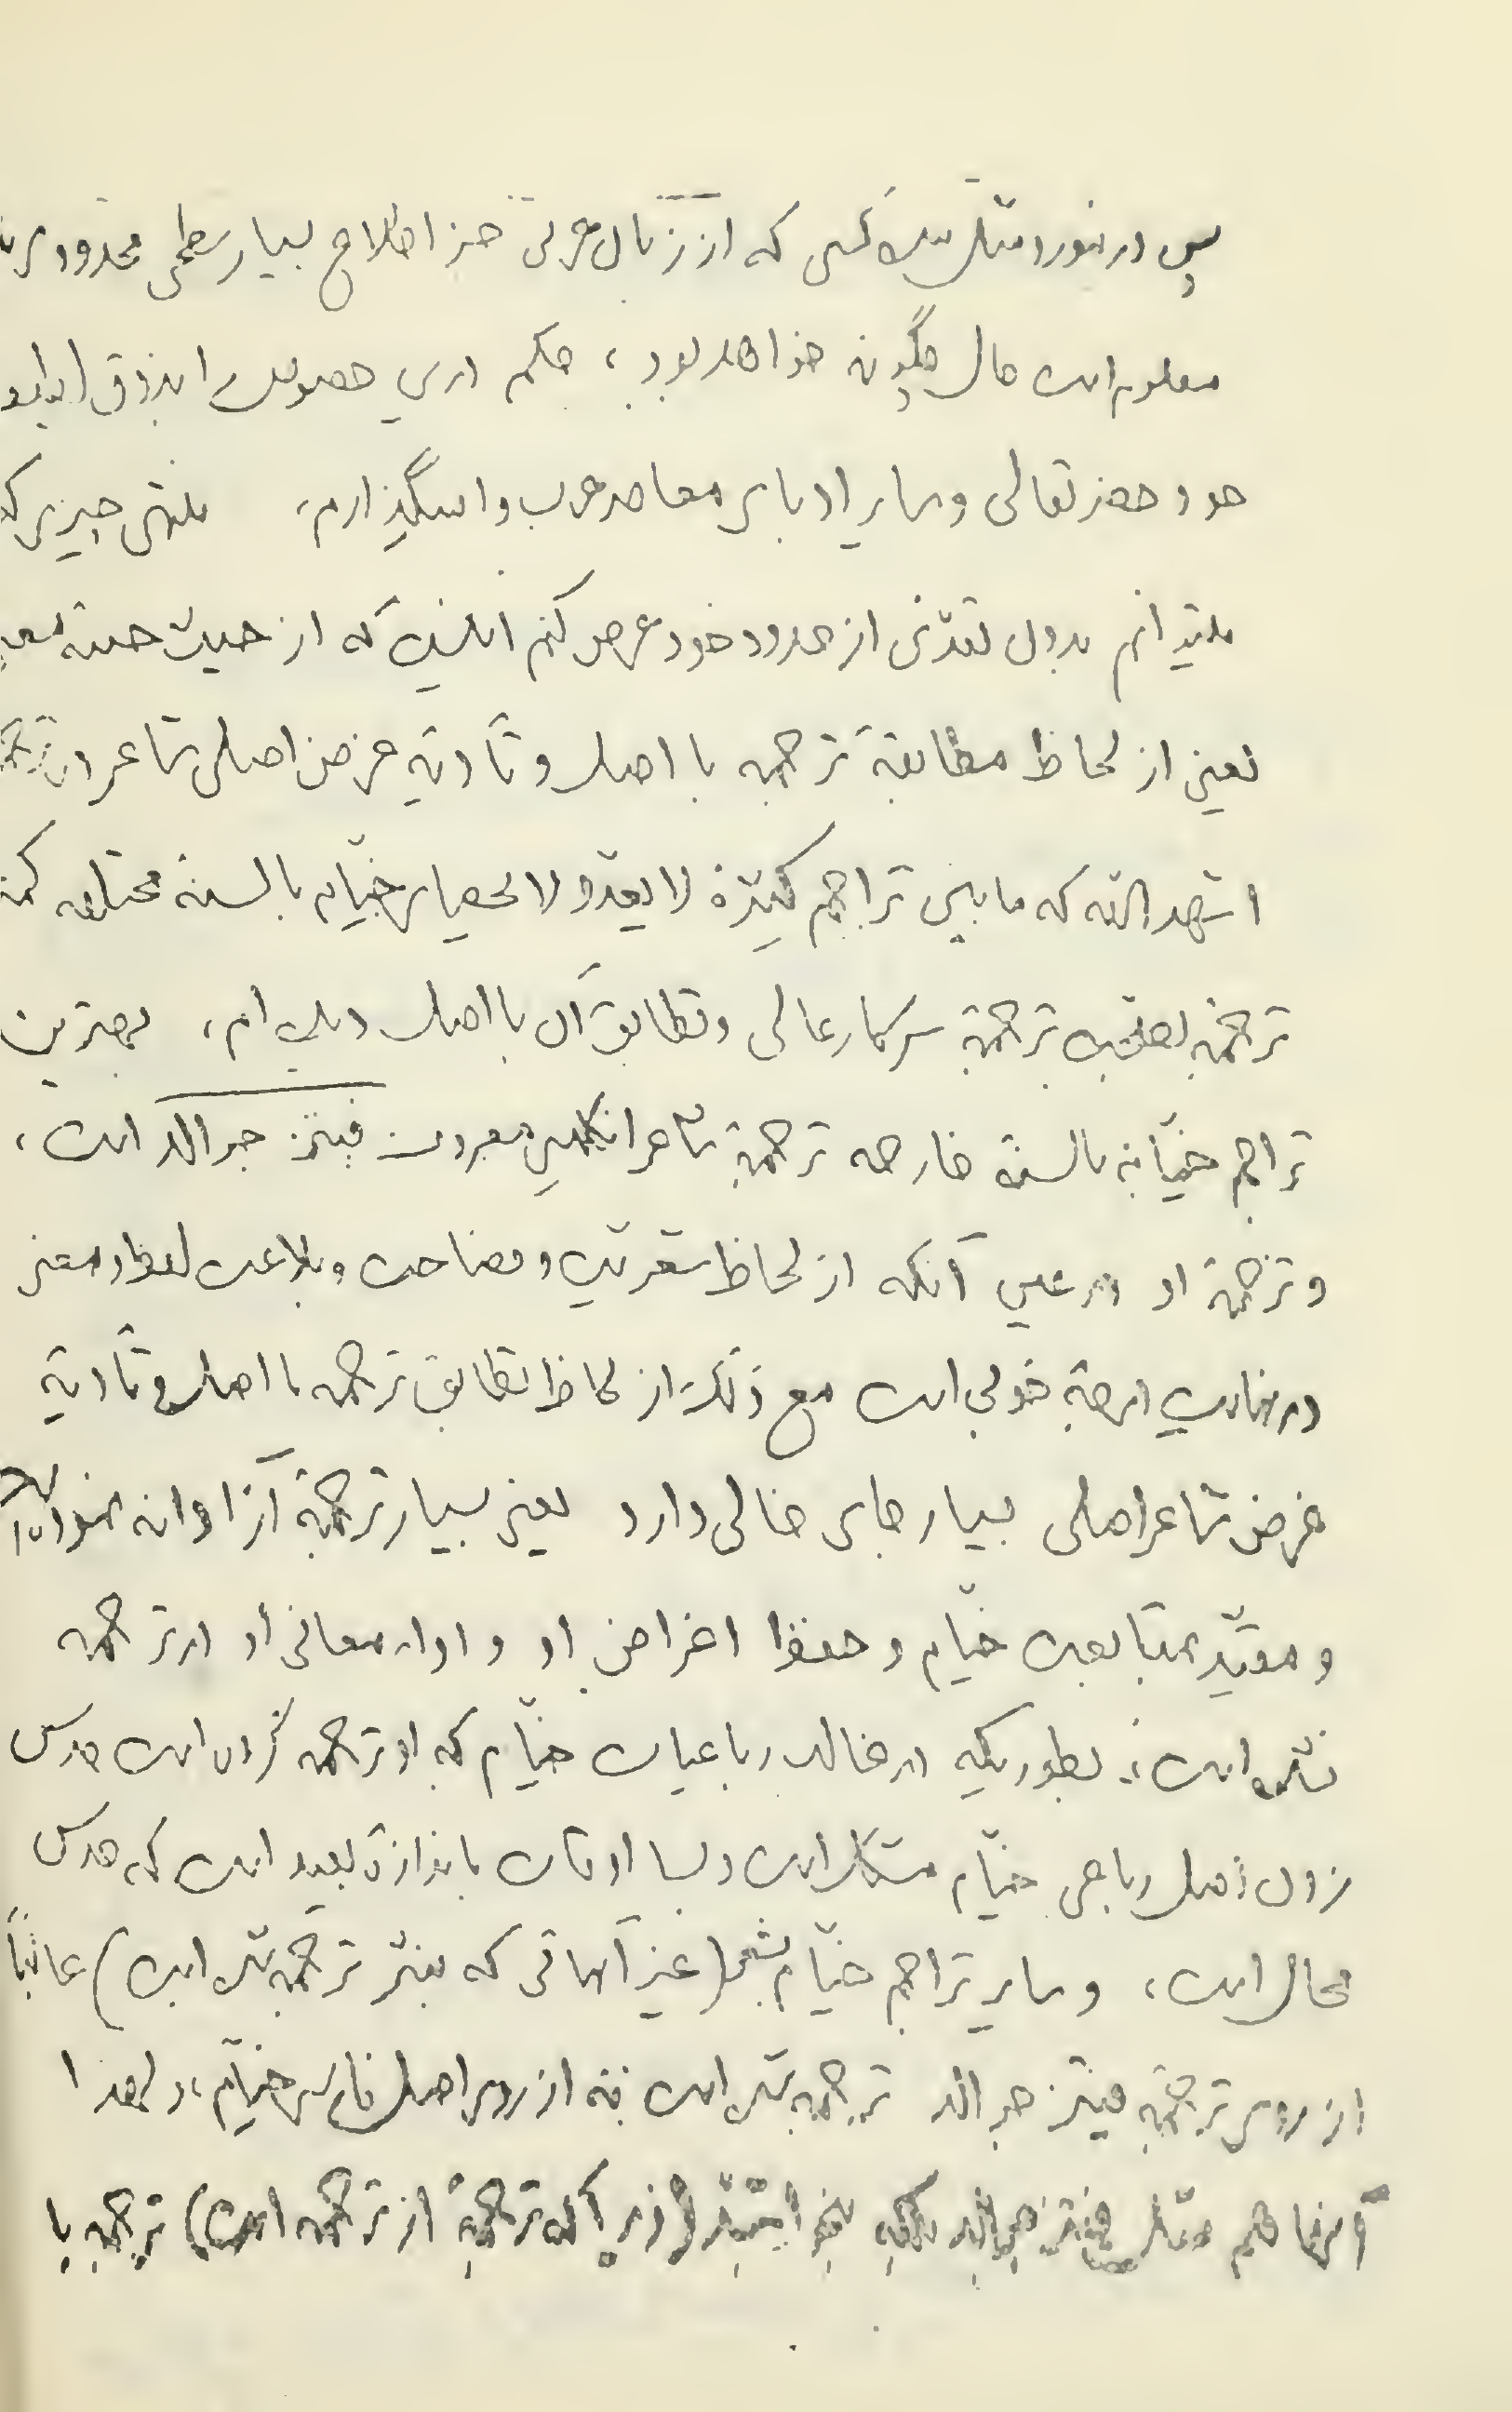 پس در مورد مثل من کسی که از زبان عربی جز اطلاع بسیار سطحی محدودی
معلوم است حال چگونه خواهد بود، حکم درین خصوص را بذوق
خود حضرتعالی و سایر ادبای معاصر عرب وا میگذارم، ولی چیزی که
میتوانم بدون تعدّی از حدود خود عرض کنم اینست که از حیث جنبه
یعنی از لحاظ مطابقهٔ ترجمه با اصل و تأدیهٔ غرض اصلی شاعر در
اشهد بالله که ما بین تراجم کثیرهٔ لا یعدّ و لا یحصای خیّام بالسنهٔ مختلفه کمتر
ترجمهٔ بدقّت ترجمهٔ سرکار عالی و تطابق آن با اصل دیده‌ام، بهترین
تراجم خیّام بالسنهٔ خارجه ترجمهٔ شاعر انگلیسی معروف فیتز جرالد است،
و ترجمهٔ او در عین آنکه از لحاظ شعریّت و فصاحت و بلاغت لفظ و معنی
در نهایت درجهٔ خوبی است مع ذلک از لحاظ تطابق ترجمه با اصل و تأدیهٔ
غرض شاعر اصلی بسیار جای خالی دارد یعنی بسیار ترجمهٔ آزادانه نموده
و مقیّد بمتابعت خیّام و حفظ اغراض او و اداء معانی او در ترجمه
نشده است، بطوریکه در غالب رباعیات خیّام که او ترجمه کرده است حدس
زدن اصل رباعی خیّام مشکل است و بسا اوقات باندازهٔ بعید است که حدس
محال است، و سایر تراجم خیّام بشعر (غیر آنهائی که بنثر ترجمه شده است) غالباً
از روی ترجمهٔ فیتز جرالد ترجمه شده است نه از روی اصل فارسی خیّام، و لهذا
آنها هم مثل فیتز جرالد بلکه نیز (زیرا که ترجمهٔ از ترجمه است) ترجمه با